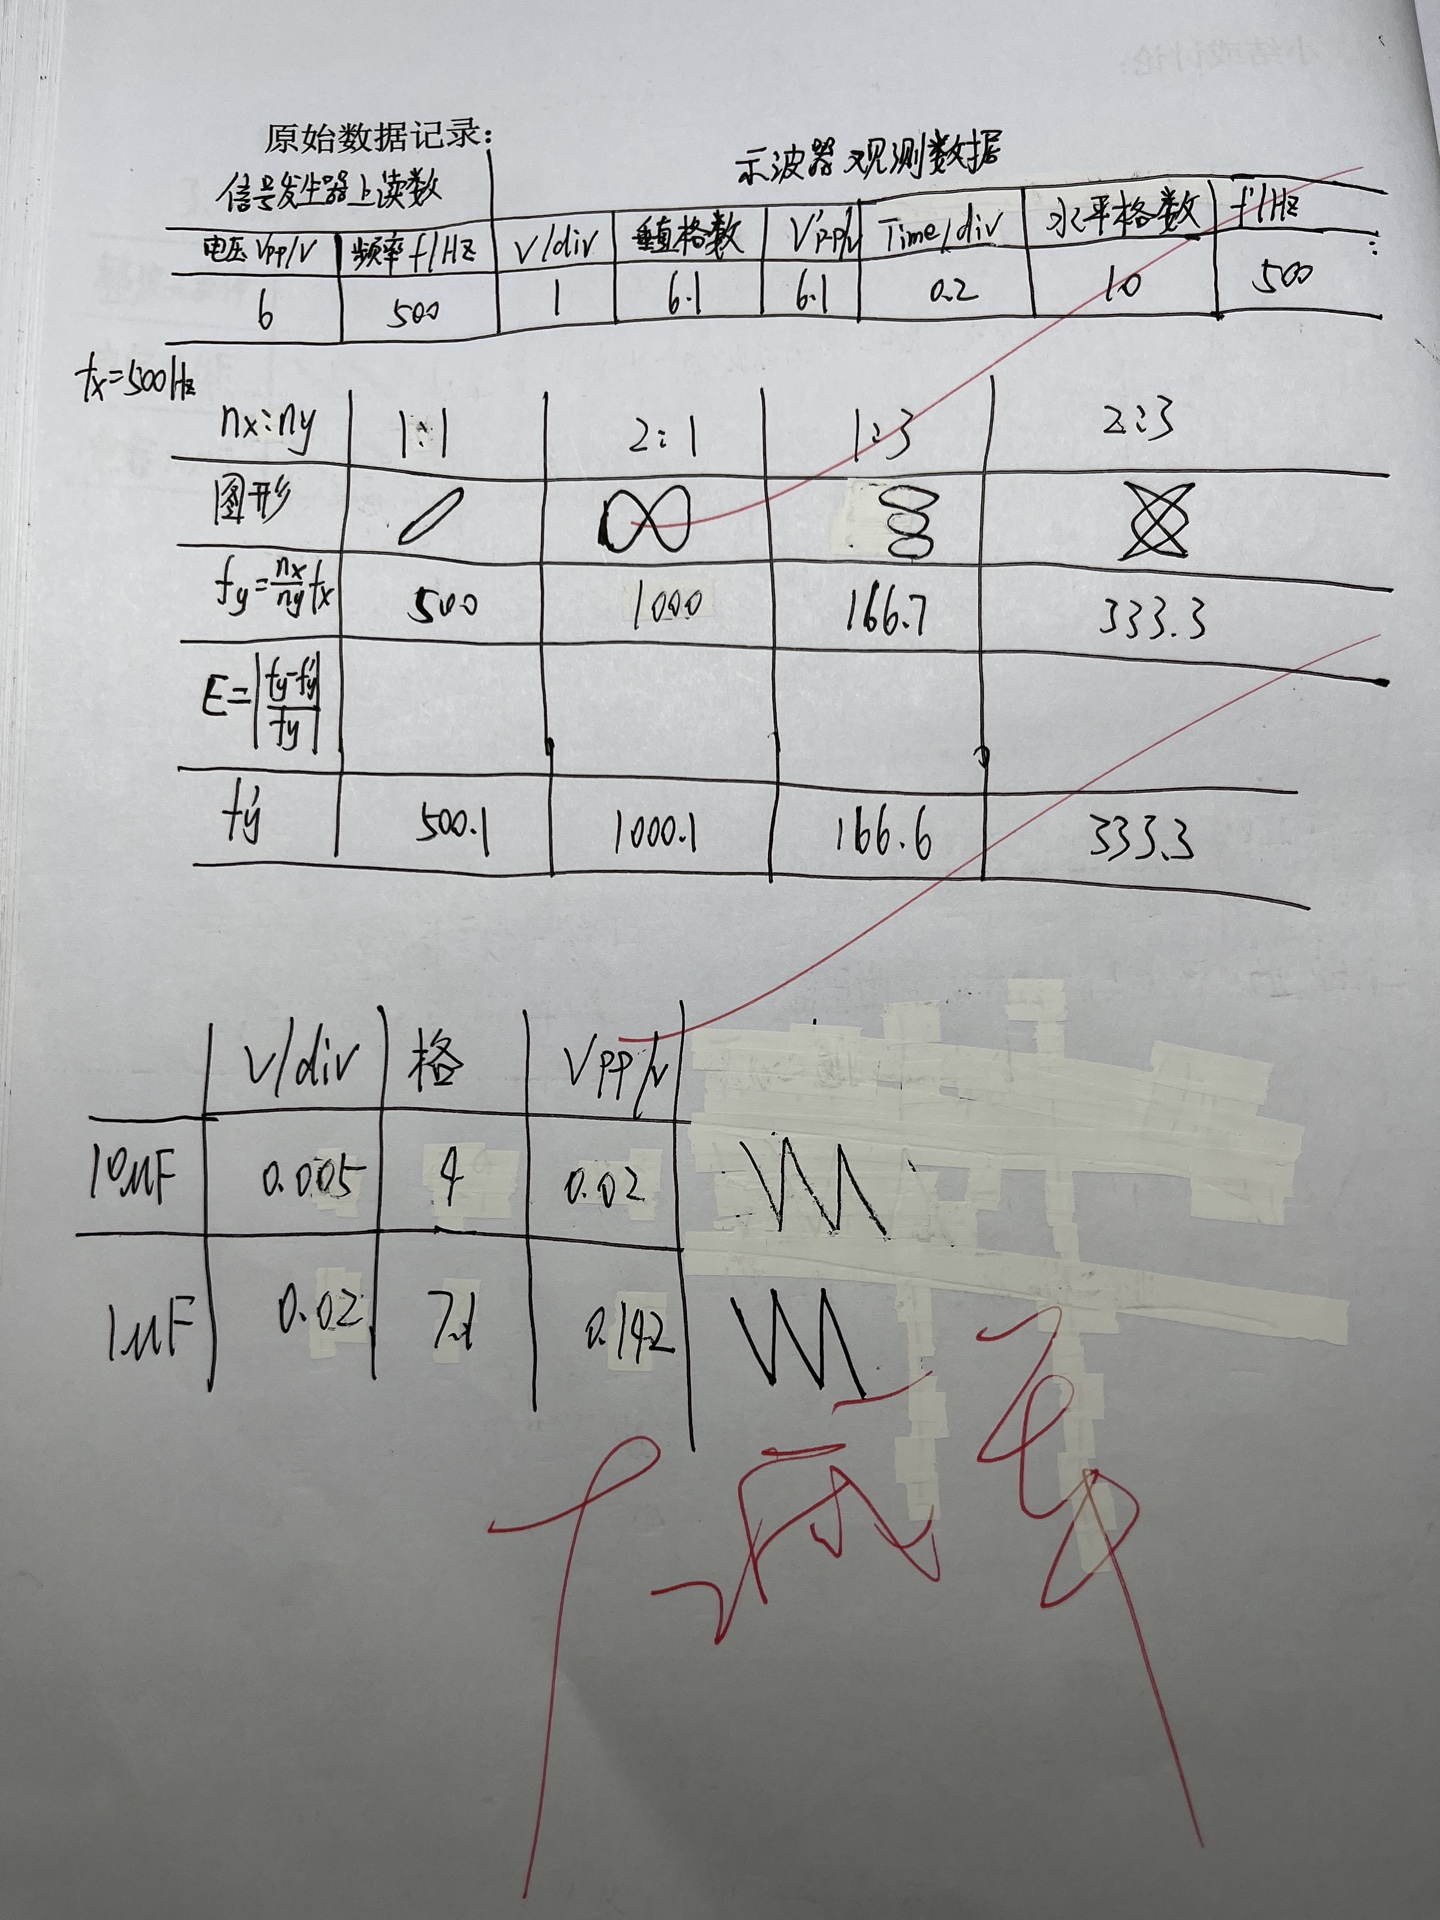 原始数据记录:
信号发生器上读数 示波器观测数据
电压Vpp/V 频率f/Hz V/div 垂直格数 V'pp/v Time/div 水平格数 f'/Hz
6 500 1 6.1 6.1 0.2 10 500
fx=500Hz
nx:ny 1:1 2:1 1:3 2:3
图形
fy=nx/ny fx 500 1000 166.7 333.3
E=|fy-fy'/fy|
fy' 500.1 1000.1 166.6 333.3
V/div 格 Vpp/v
10μF 0.005 4 0.02
1μF 0.02 7.1 0.142